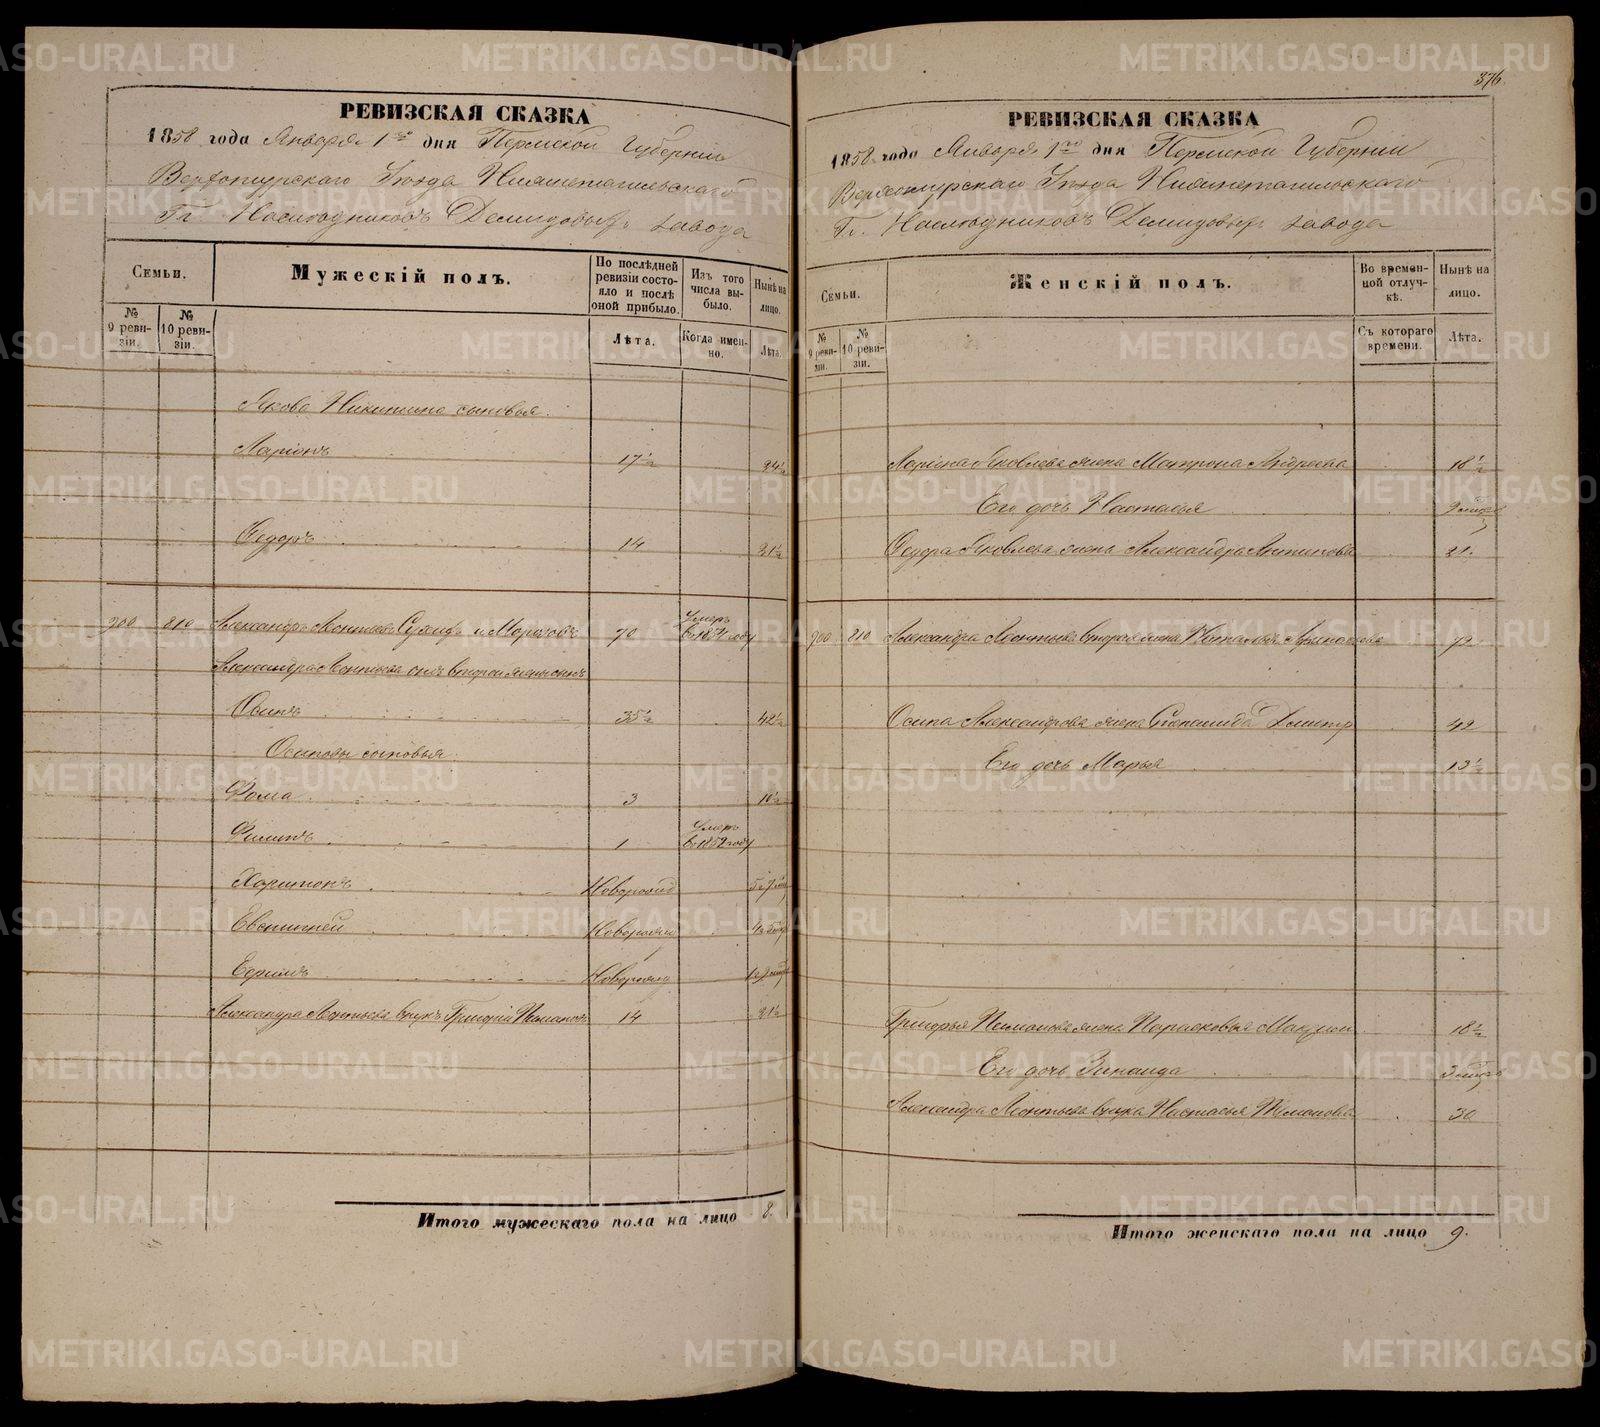 376.
РЕВИЗСКАЯ СКАЗКА
1858 года Января 1го дня Пермской Губерніи
Верхотурскаго Уѣзда Нижнетагильскаго
Гг. Наслѣдниковъ Демидовыхъ завода
Семьи.
Мужескій полъ.
По послѣдней ревизіи состояло и послѣ оной прибыло.
Изъ того числа выбыло.
Нынѣ на лицо.
№ 9 ревизіи.
№ 10 ревизіи.
Лѣта.
Когда именно.
Лѣта.
Якова Никитина сыновья.
Ларіонъ 17½ 24½
Ѳедоръ 14 21½
200 210 Александръ Леонтьевъ и Морозовъ 70 Умеръ въ 1854 году
Александра Леонтьева отъ второй жены сынъ
Осипъ 35½ 42½
Осиповы сыновья
Ѳома 3 10½
Филипъ 1 Умеръ въ 1852 году
Харитонъ Новорожд
Евстигней Новорожд
Ефимъ Новорожд
Александра Леонтьева внукъ Григорій 14 21½
Итого мужескаго пола на лицо 8.
РЕВИЗСКАЯ СКАЗКА
1858 года Января 1го дня Пермской Губерніи
Верхотурскаго Уѣзда Нижнетагильскаго
Гг. Наслѣдниковъ Демидовыхъ завода
Семьи.
Женскій полъ.
Во временной отлучкѣ.
Нынѣ на лицо.
№ 9 ревизіи.
№ 10 ревизіи.
Съ котораго времени.
Лѣта.
Ларіона Яковлева жена Матрона Андреева 18½
Его дочь Настасья
Ѳедора Яковлева жена Александра Антипова 21.
200 210 Александра Леонтьева вторая жена Наталья 72
Осипа Александрова жена Степанида Дмитр 42
Его дочь Марья 13½
Григорья жена Парасковья 18½
Его дочь Зинаида
Александра Леонтьева внука Настасья 30
Итого женскаго пола на лицо 9.
METRIKI.GASO-URAL.RU